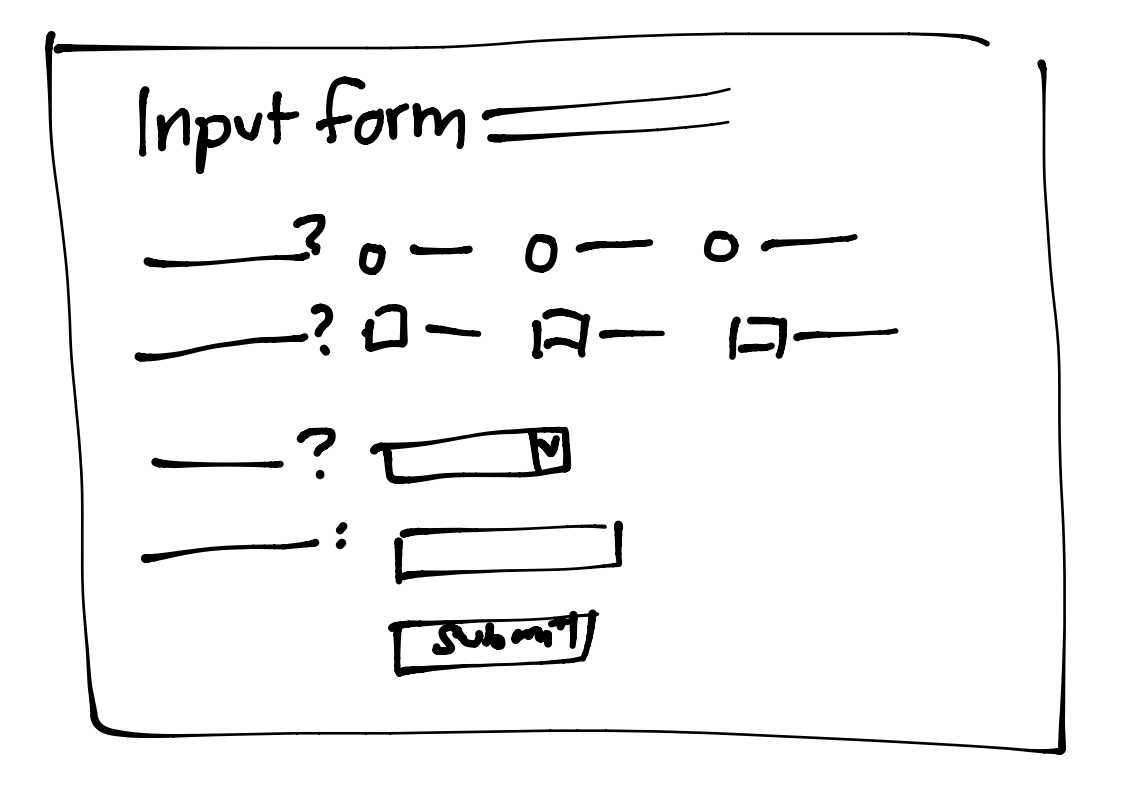 Input form
?
?
?
:
submit